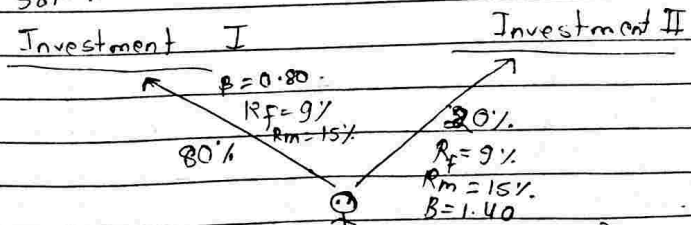 Investment I
Investment II
β = 0.80
Rf = 9%
Rm = 15%
80%
20%
Rf = 9%
Rm = 15%.
B = 1.40